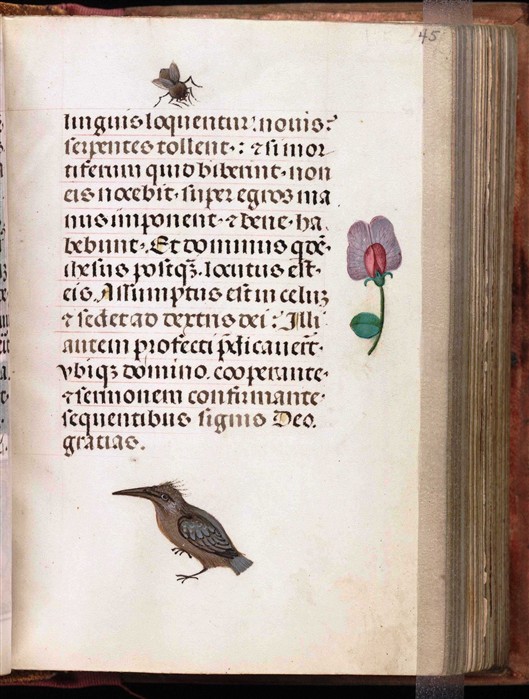 45
linguis loquentur: nouis:
serpentes tollent·: ⁊ si mor
tiferum quid biberint· non
eis nocebit· super egros ma
nus imponent· ⁊ bene· ha
bebunt·. Et dominus qdē·
ihesus postqȝ. locutus est·
eis. Assumptus est in celuȝ
⁊ sedet ad dextris dei:· Illi
autem profecti p̄dicauerūt·
vbiqȝ domino. cooperante·
⁊ sermonem confirmante·
sequentibus signis Deo.
gratias.